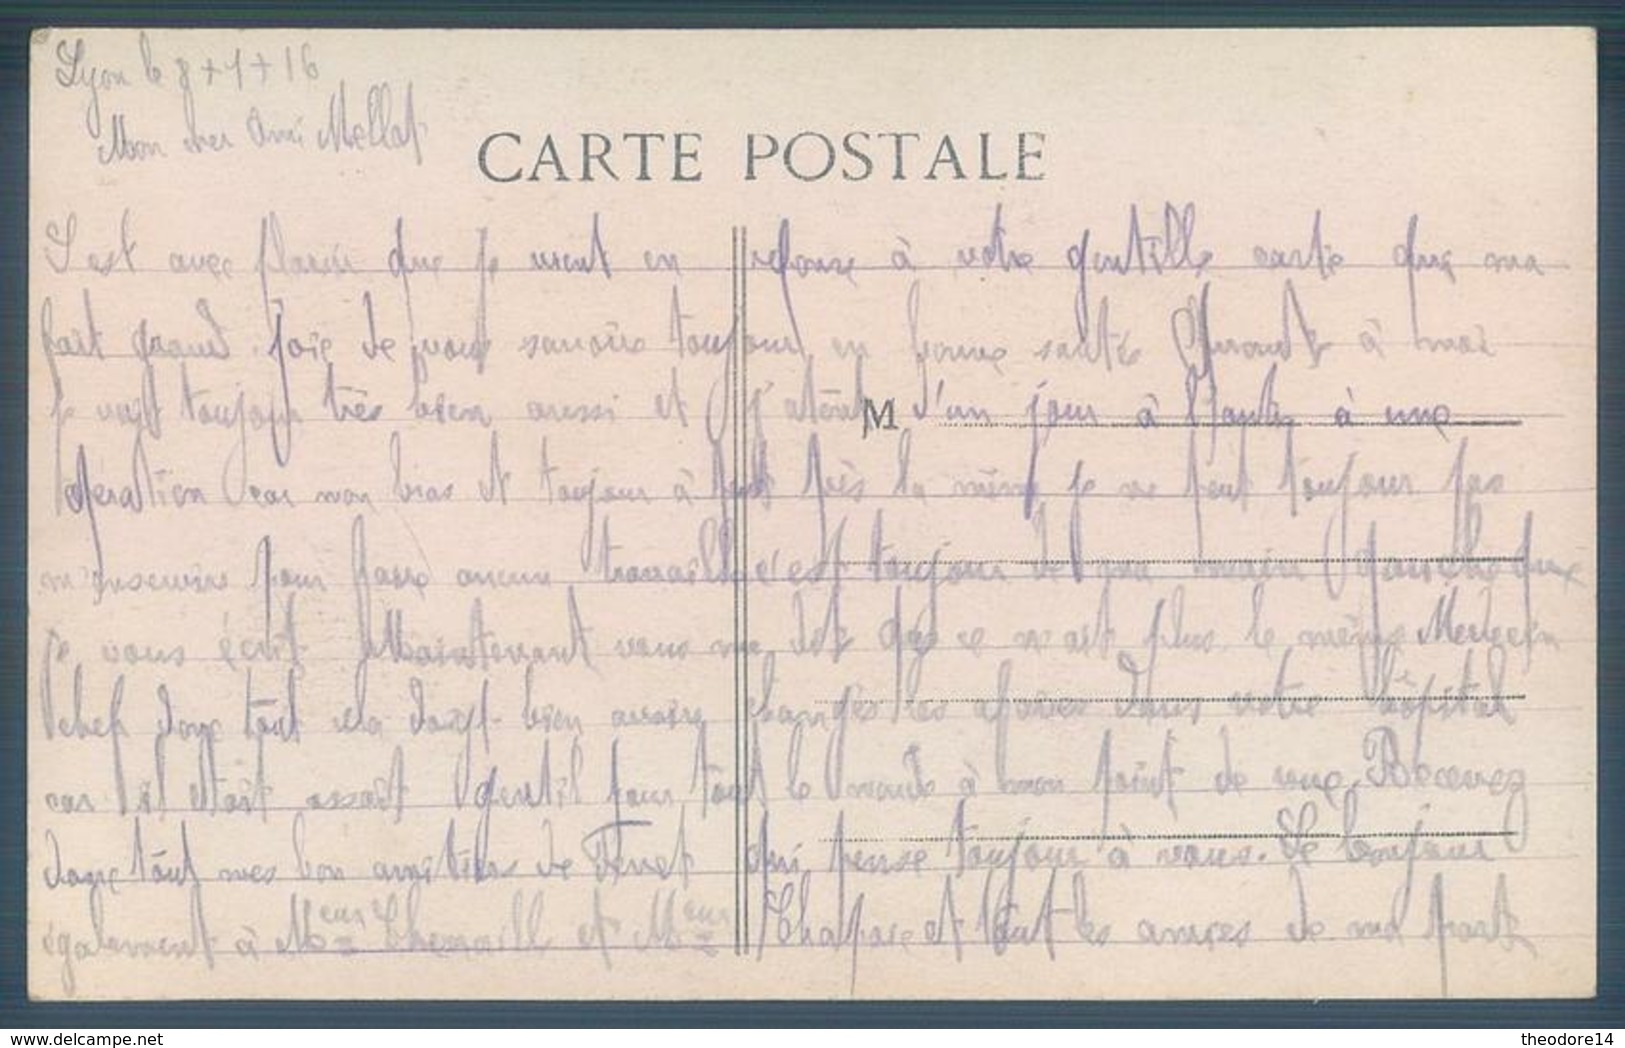 Lyon le 8+1+16
Mon cher Ami Mellat
CARTE POSTALE
C'est avec plaisir que je vient en reponse à votre gentille carte que ma
fait grand joie de vous savoire toujour en bonne santé Quant à moi
je vait toujour très bien aussi et j'atent d'un jour à l'autre à une
M
opération car mon bras et toujour à peut près la même je ne peut toujour pas
m'enservire pour faire aucun travaille c'est toujour de ma main gauche que
je vous écrit Maintenant vous me dit que ce n'ait plus le même Médecin
chef donc tout cela doit bien avoire changés les choses dans votre hôpital
car il était assait gentil pour tout le monde à mon point de vue Recevez
donc tout mes bon amitiers de Ferret qui pense toujour à vous. Le bonjour
également à Meur et Meur Chapase et tout les amies de ma part
theodore14